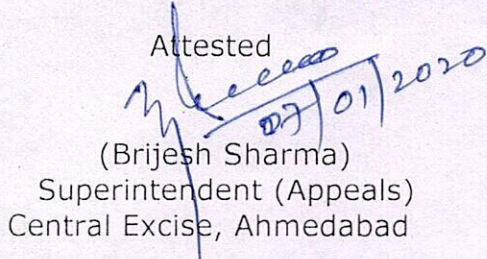 Attested
07/01/2020
(Brijesh Sharma)
Superintendent (Appeals)
Central Excise, Ahmedabad